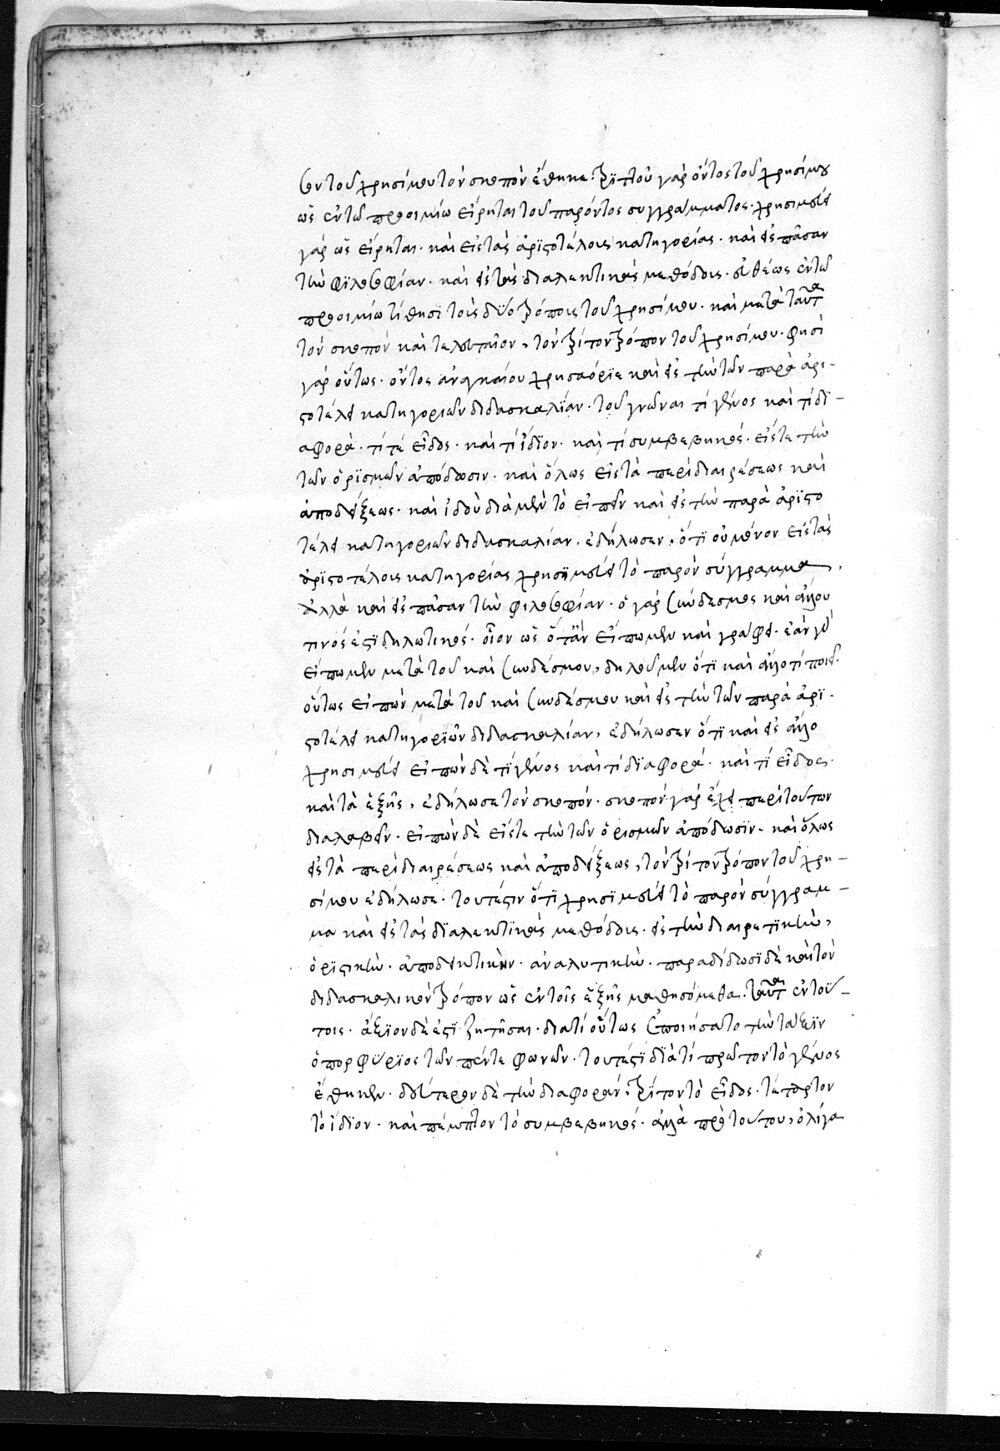 σον τοῦ χρησίμου τὸν σκοπὸν ἔθηκε. τριττοῦ γὰρ ὄντος τοῦ χρησίμου
ὡς ἐν τῷ προοιμίῳ εἴρηται τοῦ παρόντος συγγράμματος. χρησιμεύει
γὰρ ὡς εἴρηται. καὶ εἰς τὰς ἀριστοτέλους κατηγορίας. καὶ εἰς πᾶσαν
τὴν φιλοσοφίαν. καὶ εἰς τὰς διαλεκτικὰς μεθόδους. εὐθέως ἐν τῷ
προοιμίῳ τίθησι τοὺς δύο τρόπους τοῦ χρησίμου. καὶ μετὰ ταῦτα
τὸν σκοπὸν καὶ τελευταῖον, τὸν τρίτον τρόπον τοῦ χρησίμου. φησὶ
γὰρ οὕτως. ὄντος ἀναγκαίου χρυσαόριε καὶ εἰς τὴν τῶν παρὰ ἀρι-
στοτέλει κατηγοριῶν διδασκαλίαν. τοῦ γνῶναι τί γένος καὶ τί δϊ-
αφορά. τί τε εἶδος. καὶ τί ἴδϊον. καὶ τί συμβεβηκός. εἴς τε τὴν
τῶν ὁρϊσμῶν ἀπόδοσιν. καὶ ὅλως εἰς τὰ περὶ διαιρέσεως καὶ
ἀποδείξεως. καὶ ἰδοὺ διὰ μὲν τὸ εἰπεῖν καὶ εἰς τὴν παρὰ ἀρϊστο
τέλει κατηγοριῶν διδασκαλίαν, ἐδήλωσεν, ὅτϊ οὐ μόνον εἰς τὰς
ἀρϊστοτέλους κατηγορίας χρησϊμεύει τὸ παρὸν σύγγραμμα,
ἀλλὰ καὶ εἰς πᾶσαν τὴν φιλοσοφίαν. ὁ γὰρ σύνδεσμος καὶ ἄλλου
τινός ἐστϊ δηλωτικός. οἷον ὡς ὅτἂν εἴπωμεν καὶ γράφει. ἐὰν γὰρ
εἴπωμεν μετὰ τοῦ καὶ συνδέσμου, δηλοῦμεν ὅτϊ καὶ ἄλλο τί ποιεῖ.
οὕτως εἰπὼν μετὰ τοῦ καὶ συνδέσμου καὶ εἰς τὴν τῶν παρὰ ἀρϊ-
στοτέλει κατηγορϊῶν διδασκαλίαν, ἐδήλωσεν ὅτϊ καὶ εἰς ἄλλο
χρησιμεύει εἰπὼν δὲ τϊ γένος καὶ τί δϊαφορά. καὶ τί εἶδος.
καὶ τὰ ἑξῆς, ἐδήλωσε τὸν σκοπόν. σκοπὸν γὰρ ἔχει περὶ τούτων
διαλαβεῖν. εἰπὼν δὲ εἴς τε τὴν τῶν ὁρισμῶν ἀπόδωσϊν. καὶ ὅλως
εἰς τὰ περὶ διαιρέσεως καὶ ἀποδείξεως, τὸν τρίτον τρόπον τοῦ χρη-
σίμου ἐδήλωσε. τουτέστιν ὅτϊ χρησϊμεύει τὸ παρὸν σύγγραμ-
μα καὶ εἰς τὰς δϊαλεκτϊκὰς μεθόδους. εἰς τὴν διαιρετϊκὴν,
ὁρϊστικὴν. ἀποδεικτικὴν. ἀναλυτικὴν. παραδίδωσϊ δὲ καὶ τὸν
διδασκαλικὸν τρόπον ὡς ἐν τοῖς ἑξῆς μαθησόμεθα. ταῦτα ἐν τού-
τοις. ἄξϊον δὲ ἐστϊ ζητῆσαι. διατί οὕτως ἐποιήσατο τὴν τάξϊν
ὁ πορφύρϊος τῶν πέντε φωνῶν. τουτέστϊ δϊατί πρῶτον τὸ γένος
ἔθηκεν. δεύτερον δὲ τὴν διαφοράν. τρίτον τὸ εἶδος. τέταρτον
τὸ ἴδϊον. καὶ πέμπτον τὸ συμβεβηκός. ἀλλὰ πρὸ τούτου, ὀλίγα